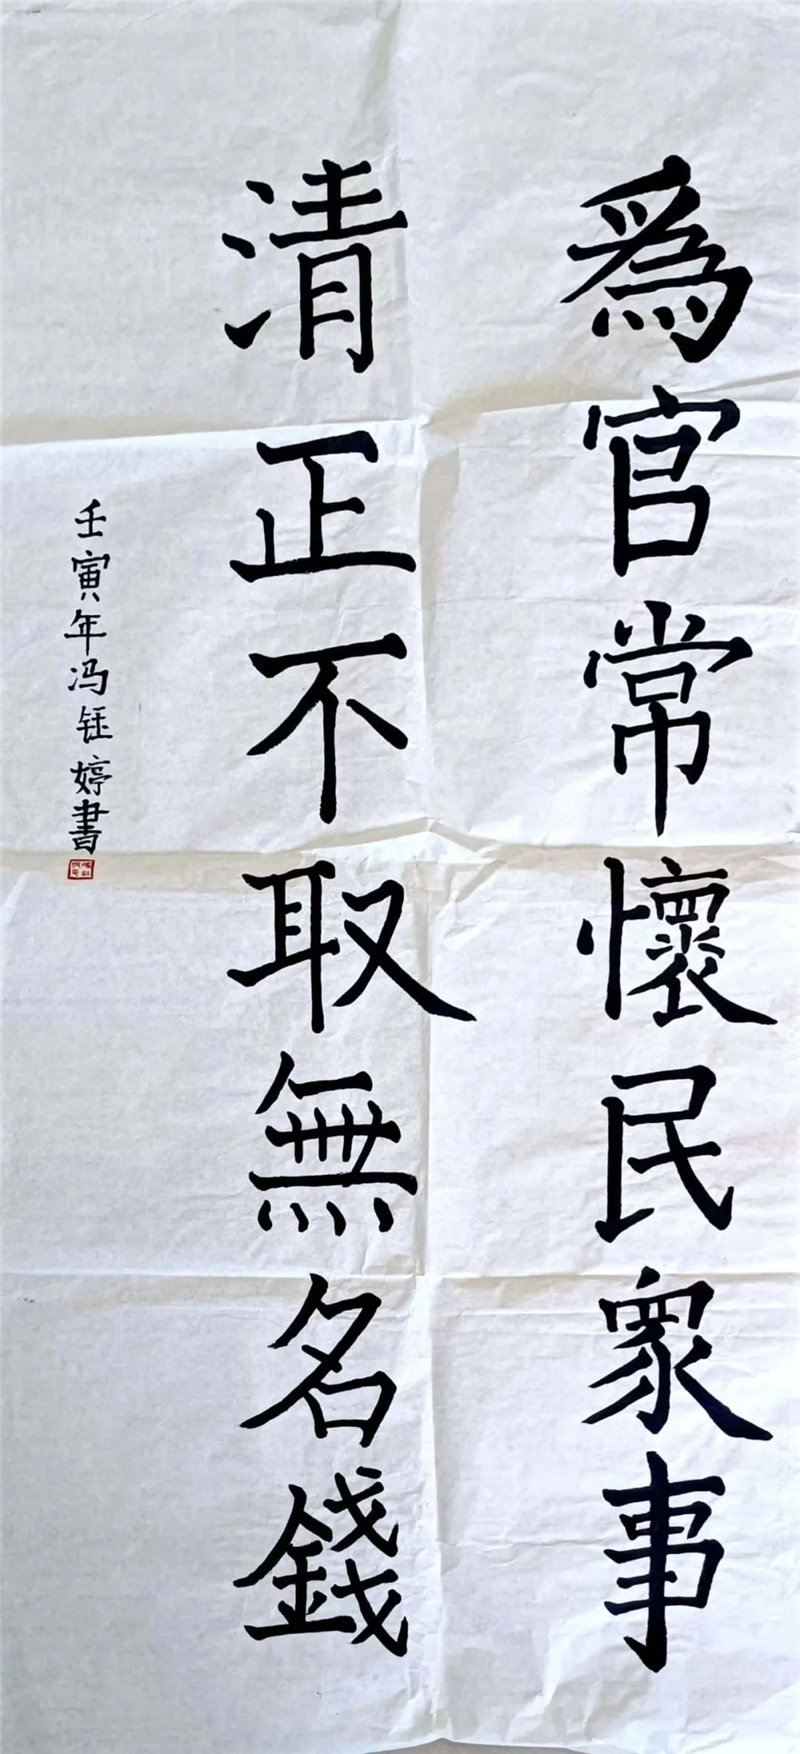 爲官常懷民眾事
清正不取無名錢
壬寅年冯钰婷書